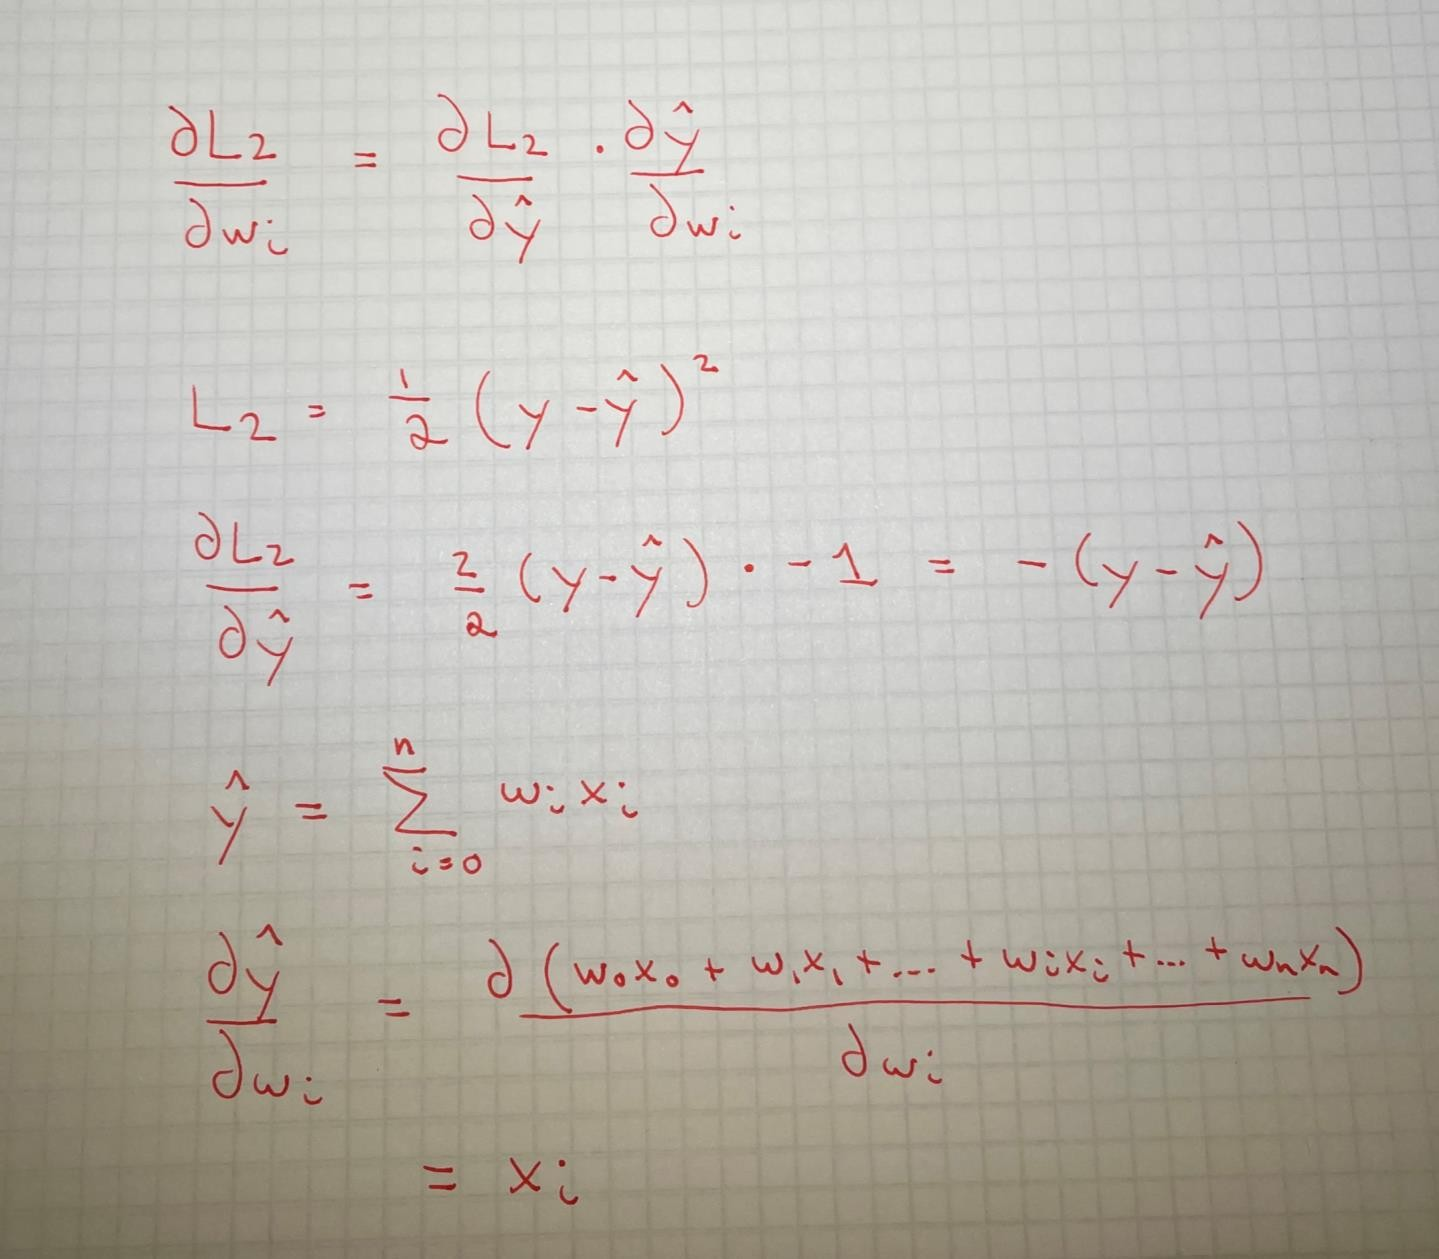 ∂L₂/∂wᵢ = ∂L₂/∂ŷ · ∂ŷ/∂wᵢ
L₂ = 1/2 (y - ŷ)²
∂L₂/∂ŷ = 2/2 (y - ŷ) · -1 = -(y - ŷ)
ŷ = ∑ⁿᵢ₌₀ wᵢxᵢ
∂ŷ/∂wᵢ = ∂(w₀x₀ + w₁x₁ + ... + wᵢxᵢ + ... + wₙxₙ)/∂wᵢ
= xᵢ